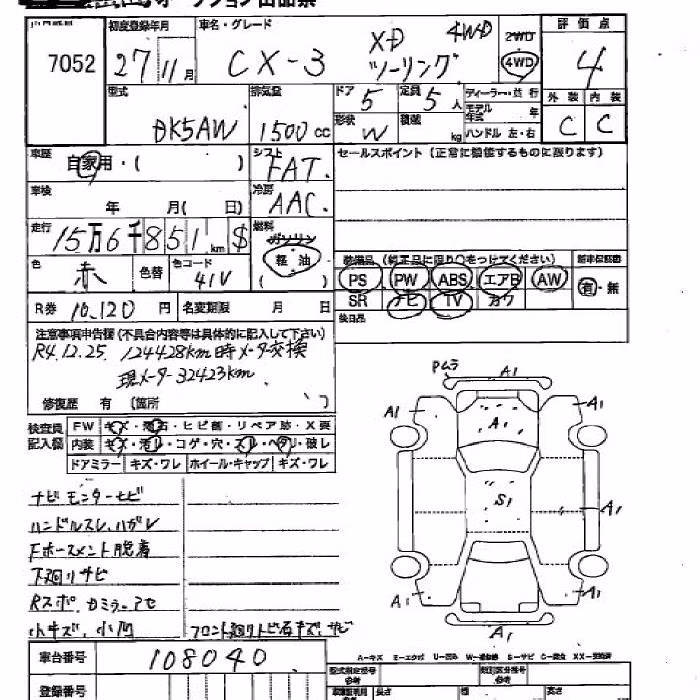 7052
初度登録年月 27年11月
車名・グレード CX-3 XD ツーリング 4WD
2WD 4WD
評価点 4
型式 DK5AW
排気量 1500cc
ドア 5
定員 5人
形状 W
積載 kg
ディーラー・並行
モデル年式 年
ハンドル 左・右
外装 C
内装 C
車歴 自家用・( )
シフト FAT.
セールスポイント (正常に機能するものに限ります)
車検 年 月(日)
冷房 AAC.
走行 15万6千851km $
燃料 ガソリン 軽油 ( )
色 赤
色替
色コード 41V
装備品 (純正品に限り○をつけてください)
新車保証書
PS PW ABS エアB AW 有・無
SR ナビ TV カワ
後日品
R券 10,120円
名変期限 月 日
注意事項申告欄 (不具合内容等は具体的に記入して下さい)
R4.12.25. 124428km時メータ交換
現メーター32423km
修復歴 有 (箇所 )
検査員記入欄
FW キズ・飛石・ヒビ割・リペア跡・X要
内装 キズ・汚レ・コゲ・穴・スレ・ヘタリ・破レ
ドアミラー キズ・ワレ ホイール・キャップ キズ・ワレ
ナビモニターセビ
ハンドルスレ、ハガレ
下廻りサビ
小キズ、小凹
フロント廻りトビ石キズ、サビ
Pムラ A1
A1 A1 A1
S1 A1
A1 A1
A1
車台番号 108040
登録番号
A-キズ E-エクボ U-凹み W-補修跡 S-サビ C-腐食 XX-交換済
型式指定番号 参考
類別区分番号 参考
長さ 幅 高さ